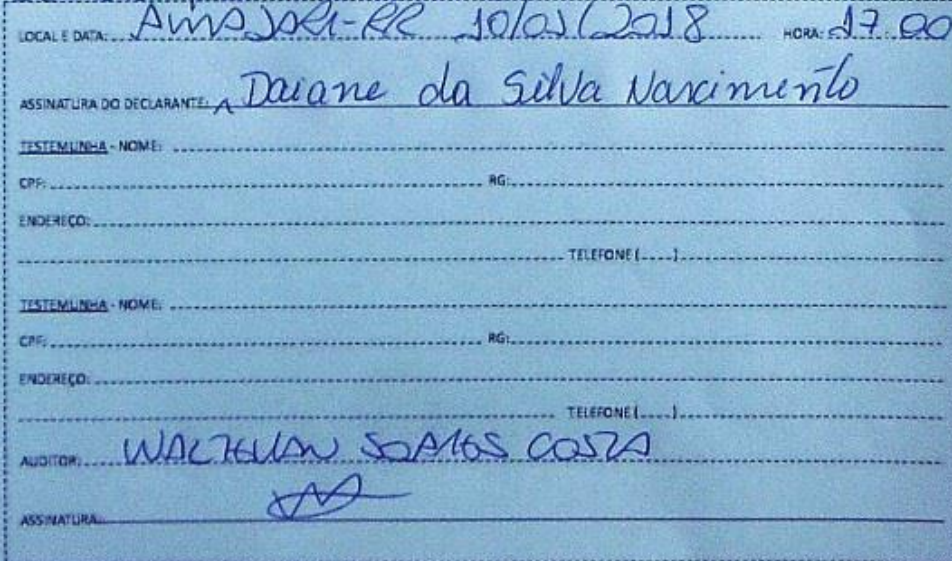 LOCAL E DATA: AMAJARI-RR 10/01/2018 HORA: 17:00
ASSINATURA DO DECLARANTE: Daiane da Silva Nascimento
TESTEMUNHA - NOME:
CPF: RG:
ENDEREÇO:
TELEFONE (....)
TESTEMUNHA - NOME:
CPF: RG:
ENDEREÇO:
TELEFONE (....)
AUDITOR: SOARES COSTA
ASSINATURA: